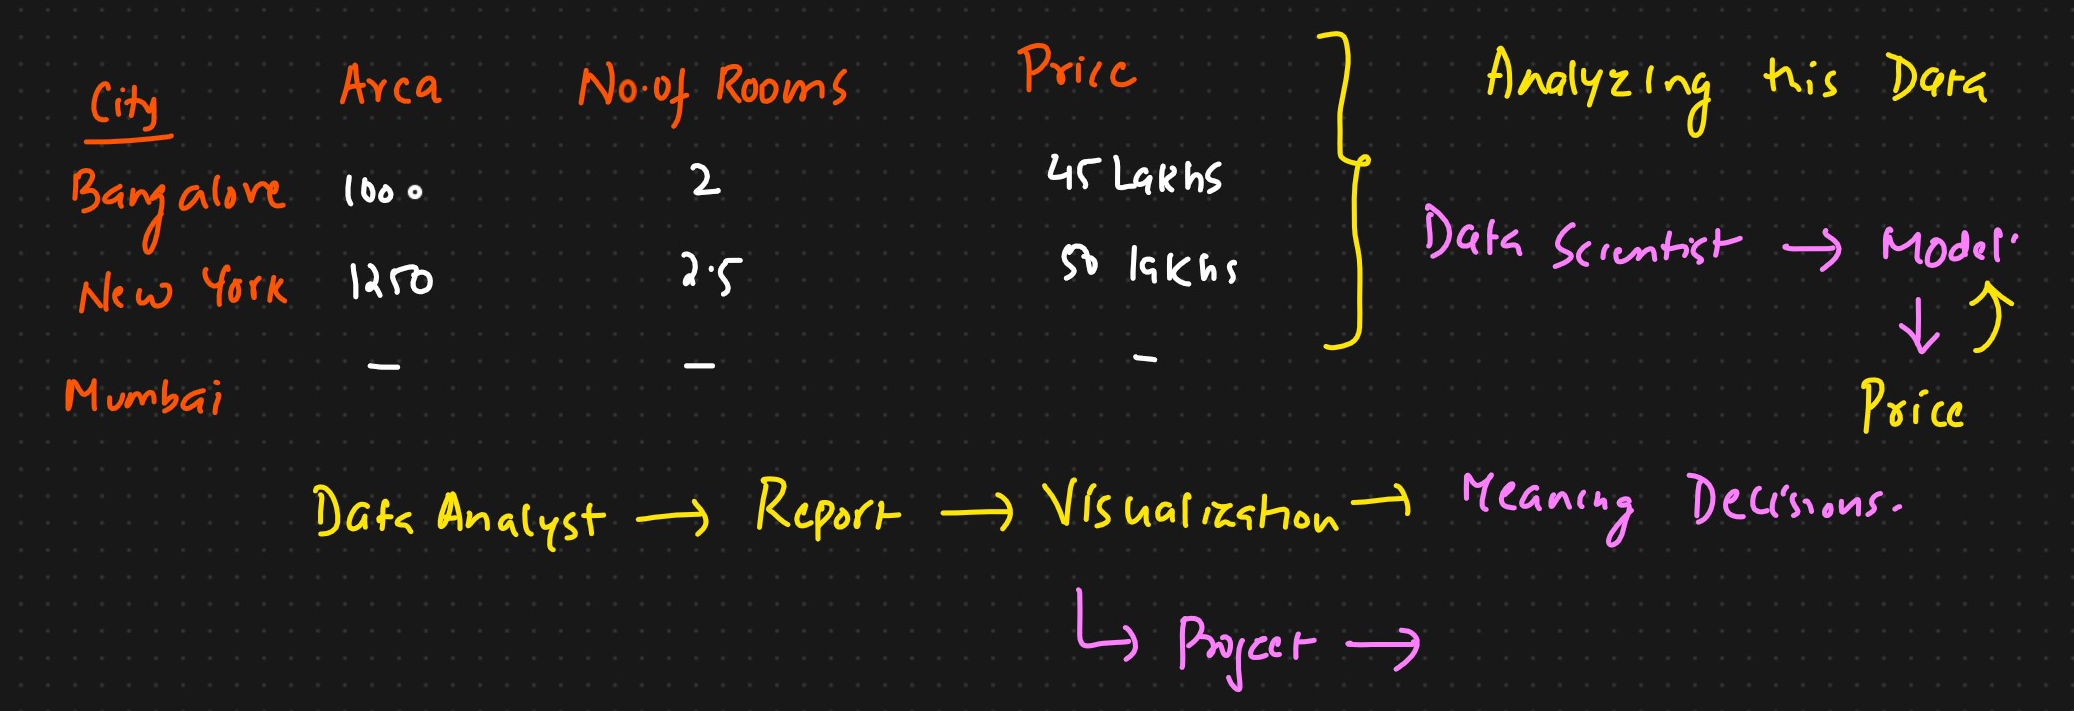 City Area No.of Rooms Price
Bangalore 1000 2 45 Lakhs
New York 1250 2.5 50 lakhs
Mumbai — — -
Analyzing this Data
Data Scientist → Model.
↓
Price
Data Analyst → Report → Visualization → Meaning Decisions.
Project →